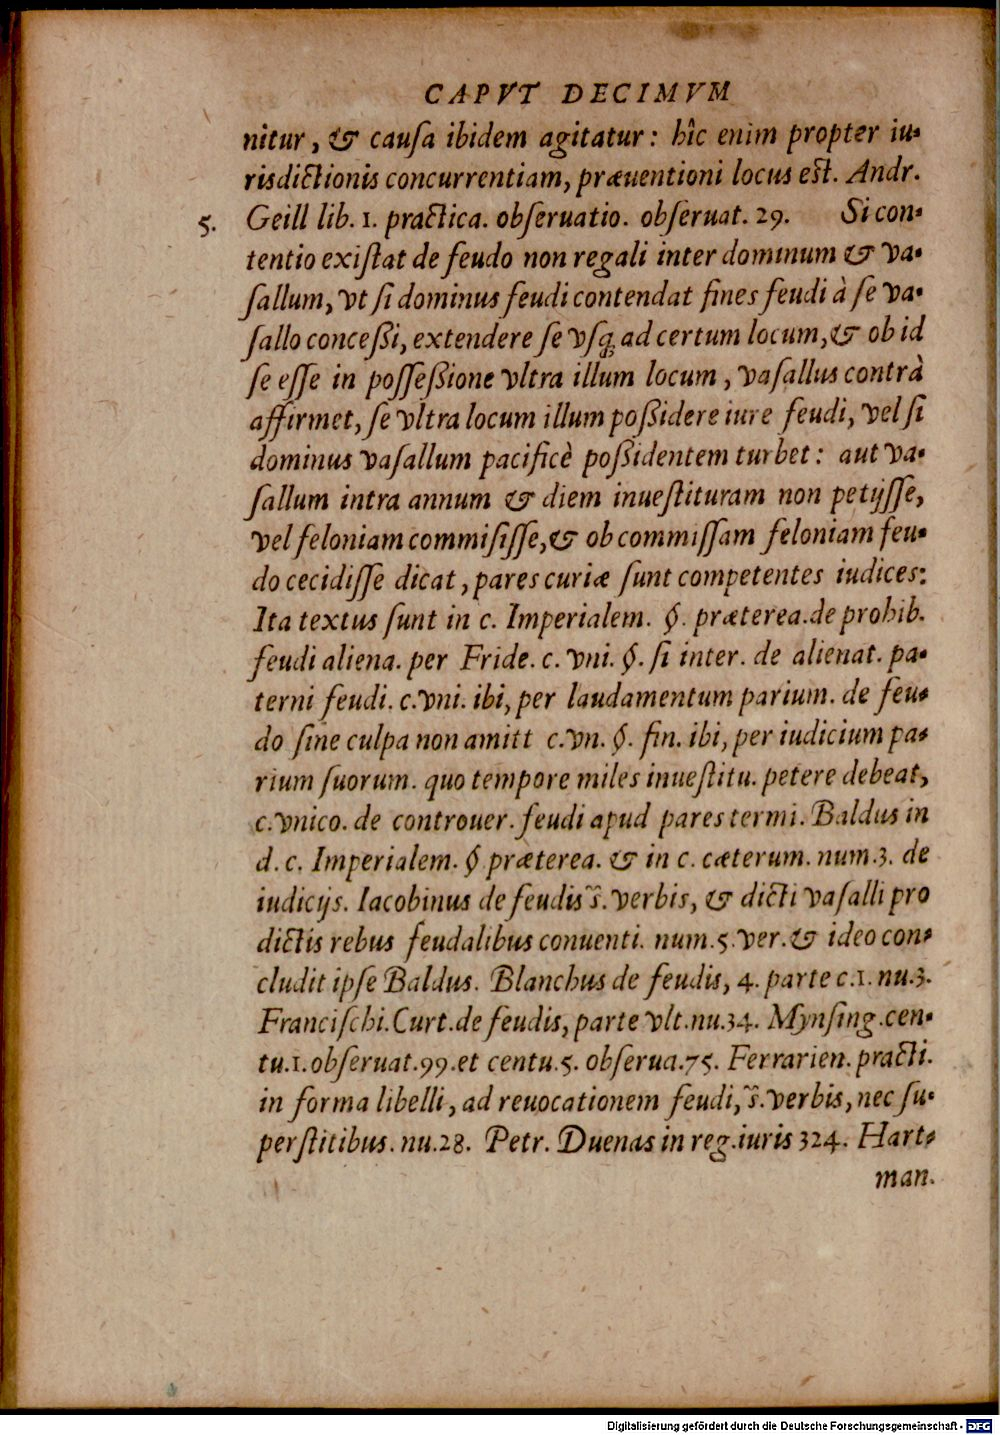 CAPVT DECIMVM
nitur, & cauſa ibidem agitatur: hîc enim propter iu-
risdictionis concurrentiam, præuentioni locus est. Andr.
5. Geill lib. 1. practica. obſeruatio. obſeruat. 29. Si con-
tentio exiſtat de feudo non regali inter dominum & va-
ſallum, vt ſi dominus feudi contendat fines feudi à ſe va-
ſallo conceßi, extendere ſe vſq; ad certum locum, & ob id
ſe eſſe in poſſeßione vltra illum locum, vaſallus contrà
affirmet, ſe vltra locum illum poßidere iure feudi, vel ſi
dominus vaſallum pacificè poßidentem turbet: aut va-
ſallum intra annum & diem inueſtituram non petijſſe,
vel feloniam commiſiſſe, & ob commiſſam feloniam feu-
do cecidiſſe dicat, pares curiæ ſunt competentes iudices:
Ita textus ſunt in c. Imperialem. §. præterea. de prohib.
feudi aliena. per Fride. c. vni. §. ſi inter. de alienat. pa-
terni feudi. c. vni. ibi, per laudamentum parium. de feu-
do ſine culpa non amitt c. vn. §. fin. ibi, per iudicium pa-
rium ſuorum. quo tempore miles inueſtitu. petere debeat,
c. vnico. de controuer. feudi apud pares termi. Baldus in
d. c. Imperialem. § præterea. & in c. cæterum. num. 3. de
iudicijs. Iacobinus de feudis ṽſ. verbis, & dicti vaſalli pro
dictis rebus feudalibus conuenti. num. 5. ver. & ideo con-
cludit ipſe Baldus. Blanchus de feudis, 4. parte c. 1. nu. 3.
Franciſchi. Curt. de feudis, parte vlt. nu. 34. Mynſing. cen-
tu. 1. obſeruat. 99. et centu. 5. obſerua. 75. Ferrarien. practi.
in forma libelli, ad reuocationem feudi, ṽſ. verbis, nec ſu-
perſtitibus. nu. 28. Petr. Duenas in reg. iuris 324. Hart-
man.
Digitalisierung gefördert durch die Deutsche Forschungsgemeinschaft - DFG